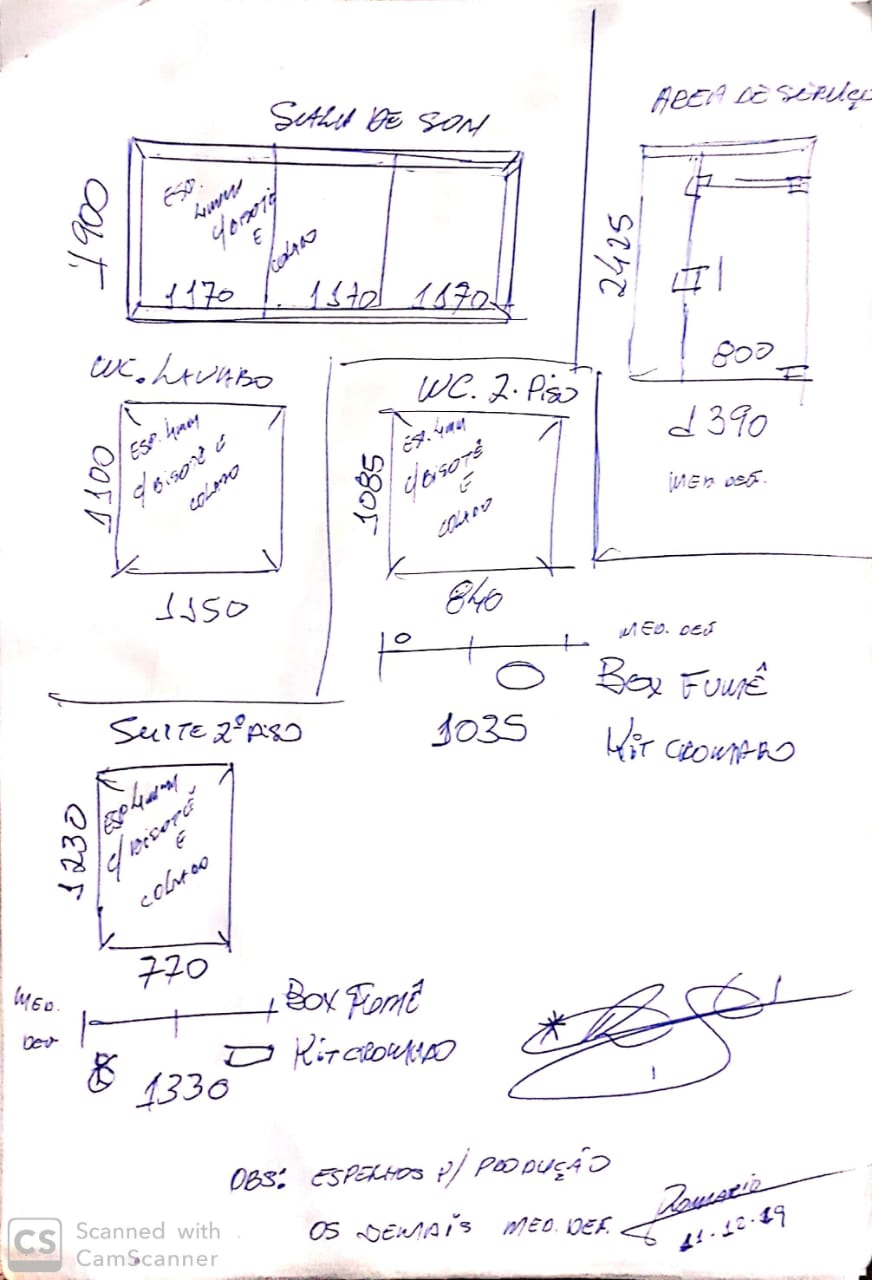 SALA DE SOM
1900
ESP.
4mm
C/ BISOTÊ
E
COLADO
1170
1170
1170
AREA DE SERVIÇO
2425
800
1390
MED DEF.
WC. LAVABO
1100
ESP. 4mm
C/ BISOTÊ E
COLADO
1150
WC. 2. Piso
1085
ESP. 4mm
C/ BISOTÊ
E
COLADO
840
MED. DEF
1035
BOX FUMÊ
KiT CROMADO
SUITE 2º PISO
1230
ESP 4mm
C/ BISOTÊ
E
COLADO
770
MED.
DEF
BOX FUMÊ
KiT CROMADO
1330
OBS: ESPELHOS P/ PRODUÇÃO
OS DEMAIS MED. DEF.
Romario
11-12-19
CS Scanned with
CamScanner